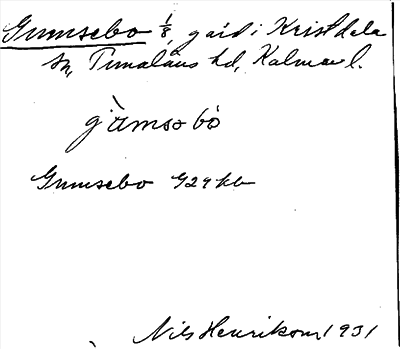 Gumsebo 1/8, gård i Kristdala
sn, Tunaläns hd, Kalmar l.
gàmsəbò
Gumsebo G29 kb
Nils Henrikson 1931